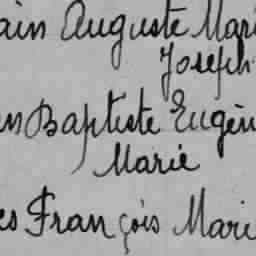 ain Auguste Mari
Joseph
en Baptiste Eugèn
Marie
es François Marie